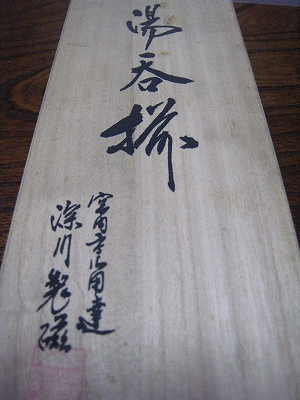 湯呑揃
宮内庁御用達
深川製磁